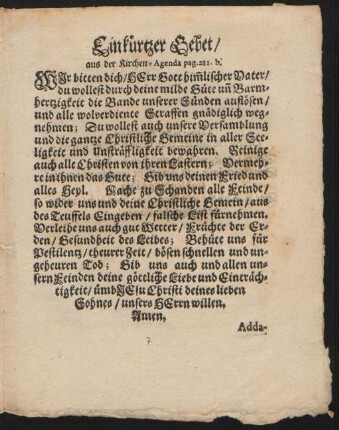 Ein kürtzer Gebet /
aus der Kirchen-Agenda pag. 281. b.
WIr bitten dich / HErr Gott him̃lischer Vater /
du wollest durch deine milde Güte uñ Barm-
hertzigkeit die Bande unserer Sünden auflösen /
und alle wolverdiente Straffen gnädiglich weg-
nehmen; Du wollest auch unsere Versamblung
und die gantze Christliche Gemeine in aller See-
ligkeit und Unsträffligkeit bewahren. Reinige
auch alle Christen von ihren Lastern; Vermeh-
re in ihnen das Gute; Gib uns deinen Fried und
alles Heyl. Mache zu Schanden alle Feinde /
so wider uns und deine Christliche Gemein / aus
des Teuffels Eingeben / falsche List fürnehmen.
Verleihe uns auch gut Wetter / Früchte der Er-
den / Gesundheit des Leibes; Behüte uns für
Pestilentz / theurer Zeit / bösen schnellen und un-
geheuren Tod; Gib uns auch und allen un-
sern Feinden deine göttliche Liebe und Einträch-
tigkeit / ümb JEsu Christi deines lieben
Sohnes / unsers HErrn willen,
Amen.
Adda-
7